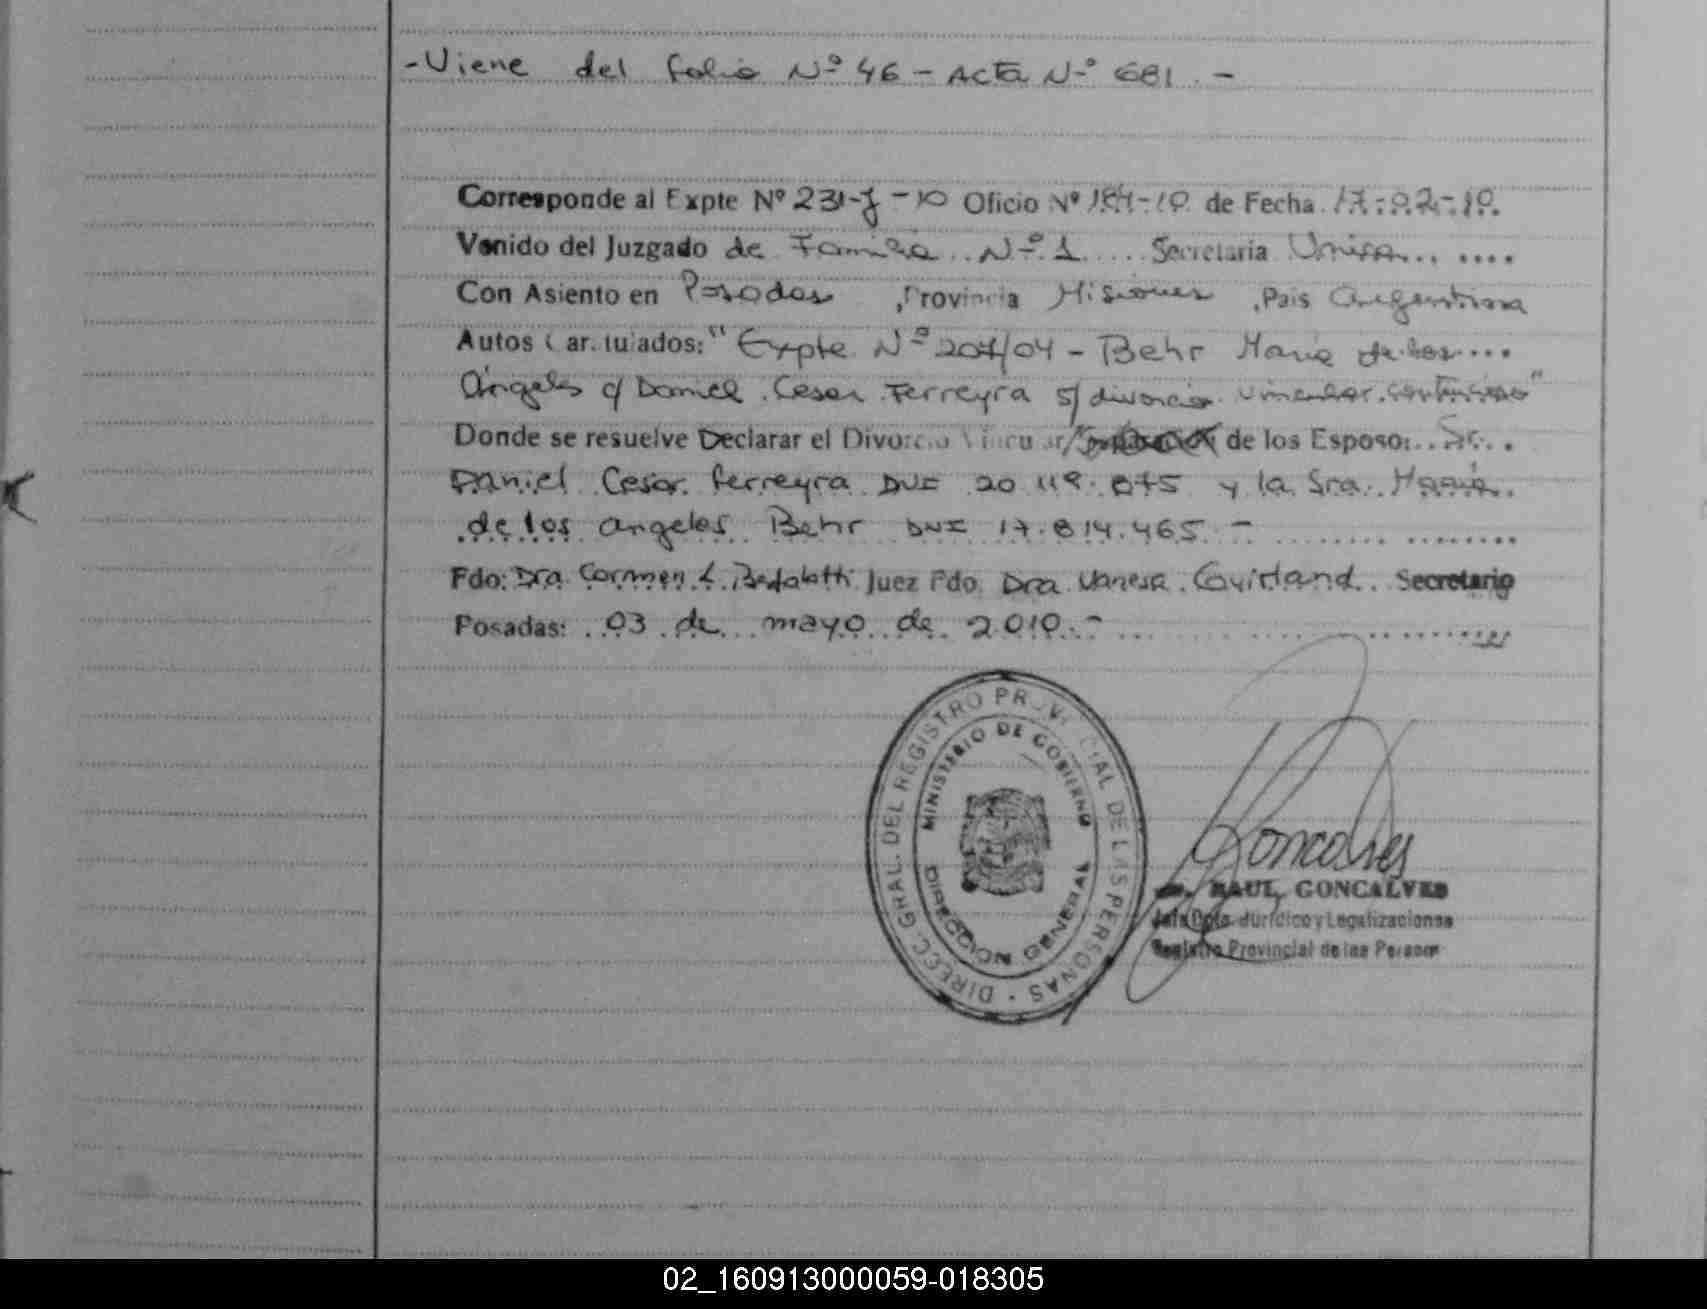 -Viene del folio Nº 46 - Acta Nº 681. -
Corresponde al Expte Nº 231-J-10 Oficio Nº 184-10 de Fecha 17-02-10.
Venido del Juzgado de Familia Nº 1 Secretaria Unica
Con Asiento en Posadas, Provincia Misiones, Pais Argentina
Autos Caratulados: "Expte Nº 207/04 - Behr Maria de los
Angeles c/ Daniel Cesar Ferreyra s/ divorcio vincular contencioso"
Donde se resuelve Declarar el Divorcio Vincular/ de los Esposos: Sr.
Daniel Cesar Ferreyra DNI 20.119.875 y la Sra. Maria
de los angeles Behr DNI 17.814.465. -
Fdo: Dra. Carmen L. Juez Fdo. Dra Vanesa Secretario
Posadas: 03 de mayo de 2010. -
DIRECC. GRAL. DEL REGISTRO PROVINCIAL DE LAS PERSONAS
MINISTERIO DE GOBIERNO
DIRECCION GENERAL
Goncalves
RAUL GONCALVES
Jefe Dpto. Jurídico y Legalizaciones
Registro Provincial de las Person
02_160913000059-018305